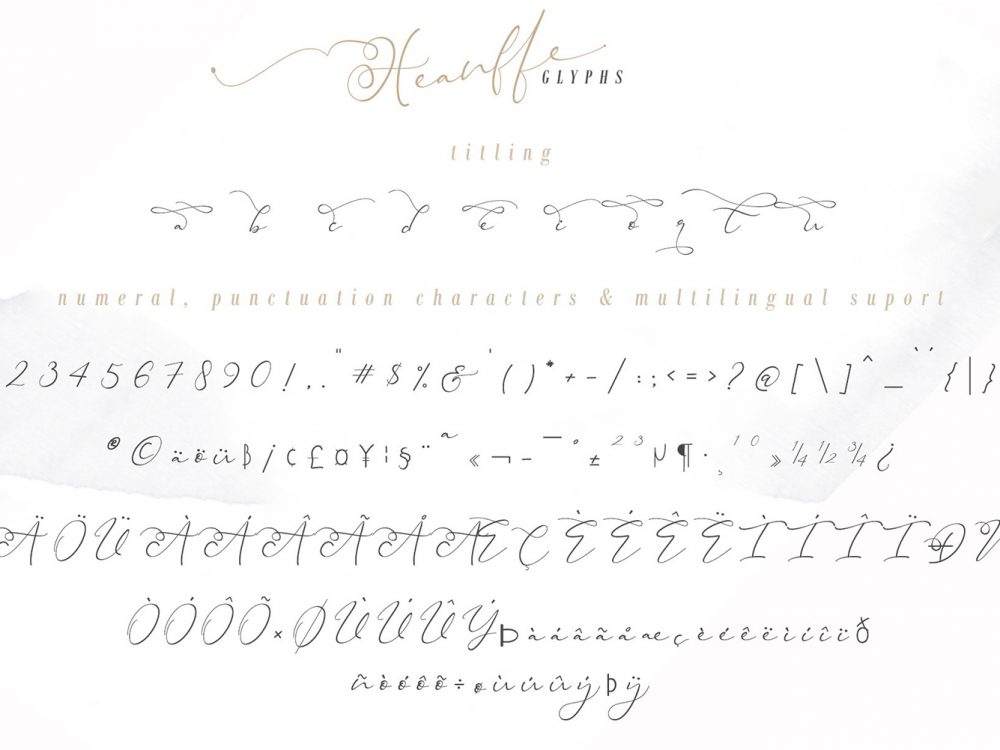 Heanffe GLYPHS
titling
a b c d e i o q t u
numeral, punctuation characters & multilingual suport
2 3 4 5 6 7 8 9 0 ! , . " # $ % & ' ( ) * + - / : ; < = > ? @ [ \ ] ^ _ ` ` { | }
® © ä ö ü ß ¡ ¢ £ ¤ ¥ ¦ § ¨ ~ « ¬ - ¯ ° ± ² ³ µ ¶ · ¸ ¹ ⁰ » ¼ ½ ¾ ¿
Ä Ö Ü À Á Â Ã Å Æ Ç È É Ê Ë Ì Í Î Ï Ð
Ò Ó Ô Õ × Ø Ù Ú Û Ý Þ à á â ã å æ ç è é ê ë ì í î ï ð
ñ ò ó ô õ ÷ ø ù ú û ý þ ÿ